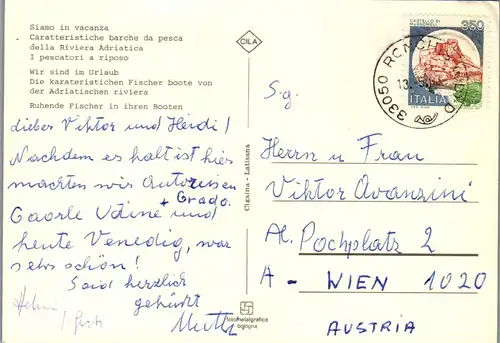 Siamo in vacanza
Caratteristiche barche da pesca
della Riviera Adriatica
I pescatori a riposo
Wir sind im Urlaub
Die karateristichen Fischer boote von
der Adriatischen riviera
Ruhende Fischer in ihren Booten
lieber Viktor und Heidi!
Nachdem es kalt ist hier
machten wir Autoreisen
+ Grado.
Caorle Udine und
heute Venedig, war
sehr schön!
Seid herzlich
geküsst
Mutti
CILA
Cigaina - Latisana
fotometalgrafica
bologna
350
ITALIA
33050
S.g.
Herrn u Frau
Viktor Avanzini
Al. Pochplatz 2
A - WIEN 1020
AUSTRIA